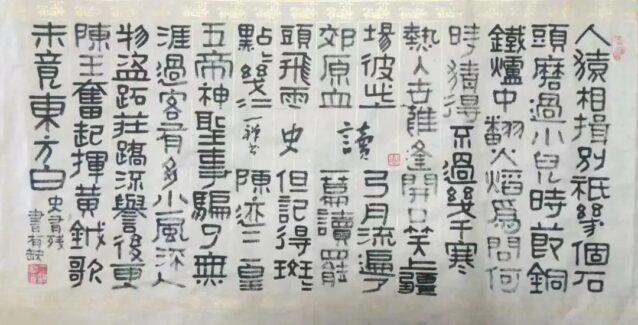 人猿相揖別祇幾個石
頭磨過小兒時節銅
鐵爐中翻火焰爲問何
時猜得不過幾千寒
熱人世難逢開口笑上疆
場彼此弓月流遍了
郊原血讀篇讀罷
頭飛雨史但記得斑=
點=幾行陳迹三皇
五帝神聖事騙了無
涯過客有多少風流人
物盜跖莊蹻流譽後更
陳王奮起揮黃鉞歌
未竟東方白